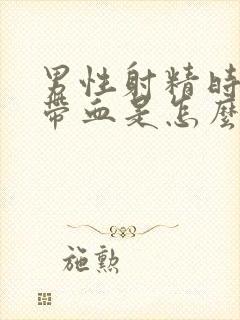 男性射精時
帶血是怎麼
施勲